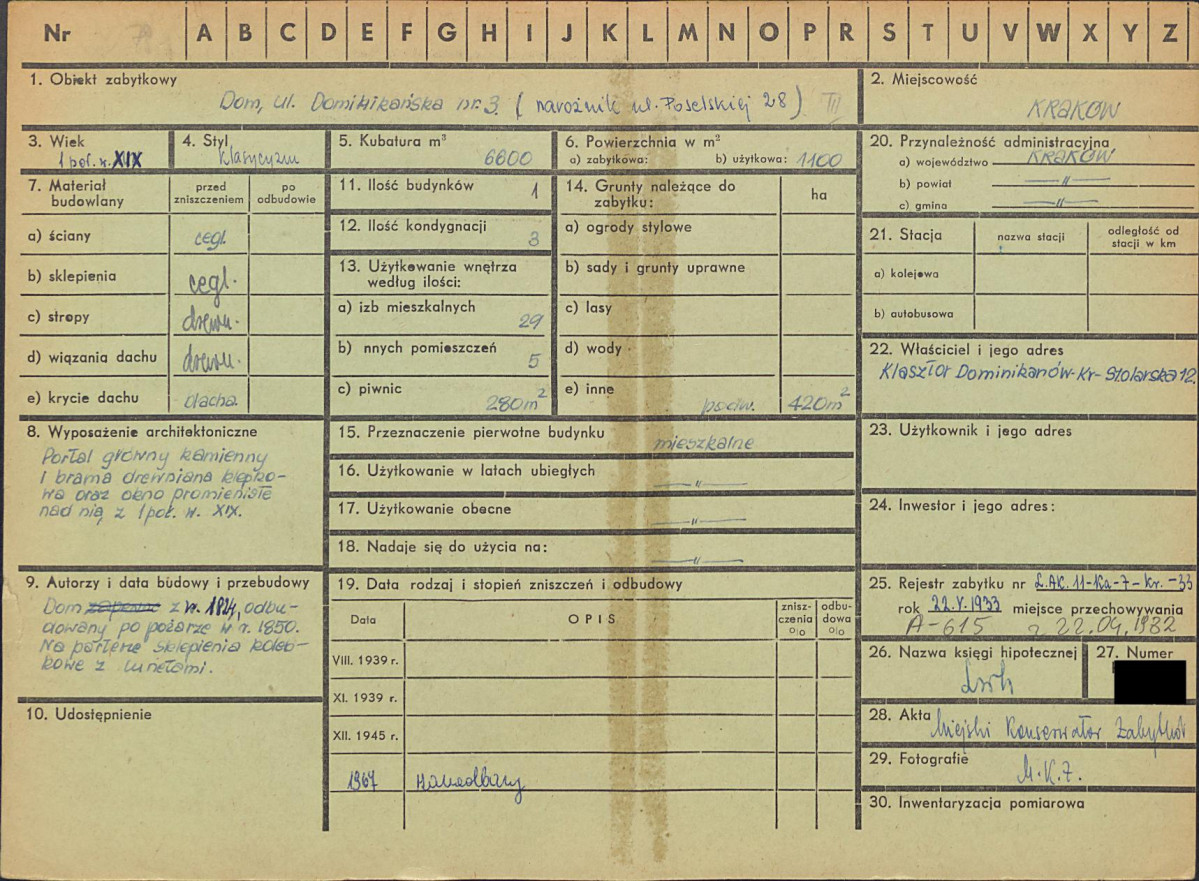 Nr A B C D E F G H I J K L M N O P R S T U V W X Y Z
1. Obiekt zabytkowy
Dom, ul. Dominikańska nr. 3. ( narożnik ul. Poselskiej 28 ) III
2. Miejscowość
KRAKÓW
3. Wiek
1 poł. w. XIX
4. Styl
klasycyzm
5. Kubatura m³
6600
6. Powierzchnia w m²
a) zabytkowa: b) użytkowa: 1100
20. Przynależność administracyjna
a) województwo KRAKÓW
b) powiat —〃—
c) gmina —〃—
7. Materiał budowlany
przed zniszczeniem
po odbudowie
a) ściany cegl.
b) sklepienia cegl.
c) stropy drewn.
d) wiązania dachu drewn.
e) krycie dachu blacha.
11. Ilość budynków 1
12. Ilość kondygnacji 3
13. Użytkowanie wnętrza
według ilości:
a) izb mieszkalnych 29
b) nnych pomieszczeń 5
c) piwnic 280m²
14. Grunty należące do
zabytku:
ha
a) ogrody stylowe
b) sady i grunty uprawne
c) lasy
d) wody
e) inne podw. 420m²
21. Stacja
nazwa stacji
odległość od
stacji w km
a) kolejowa
b) autobusowa
22. Właściciel i jego adres
Klasztor Dominikanów-Kr- Stolarska 12.
8. Wyposażenie architektoniczne
Portal główny kamienny
i brama drewniana klepko-
wa oraz okno promieniste
nad nią z 1 poł. w. XIX.
15. Przeznaczenie pierwotne budynku mieszkalne
16. Użytkowanie w latach ubiegłych —〃—
17. Użytkowanie obecne —〃—
18. Nadaje się do użycia na: —〃—
23. Użytkownik i jego adres
24. Inwestor i jego adres:
9. Autorzy i data budowy i przebudowy
Dom z w. odbu-
dowany po pożarze w r. 1850.
Na parterze sklepienia koleb-
kowe z lunetami.
19. Data rodzaj i stopień zniszczeń i odbudowy
Data
OPIS
znisz-
czenia
o|o
odbu-
dowa
o|o
VIII. 1939 r.
XI. 1939 r.
XII. 1945 r.
1967
25. Rejestr zabytku nr L.AK. 11-Ka-7-Kr.-33
rok 22.V.1933 miejsce przechowywania
A-615 z 22.04.1932
26. Nazwa księgi hipotecznej
Lwh
27. Numer
10. Udostępnienie
28. Akta Miejski Konserwator Zabytków
29. Fotografie M.K.Z.
30. Inwentaryzacja pomiarowa